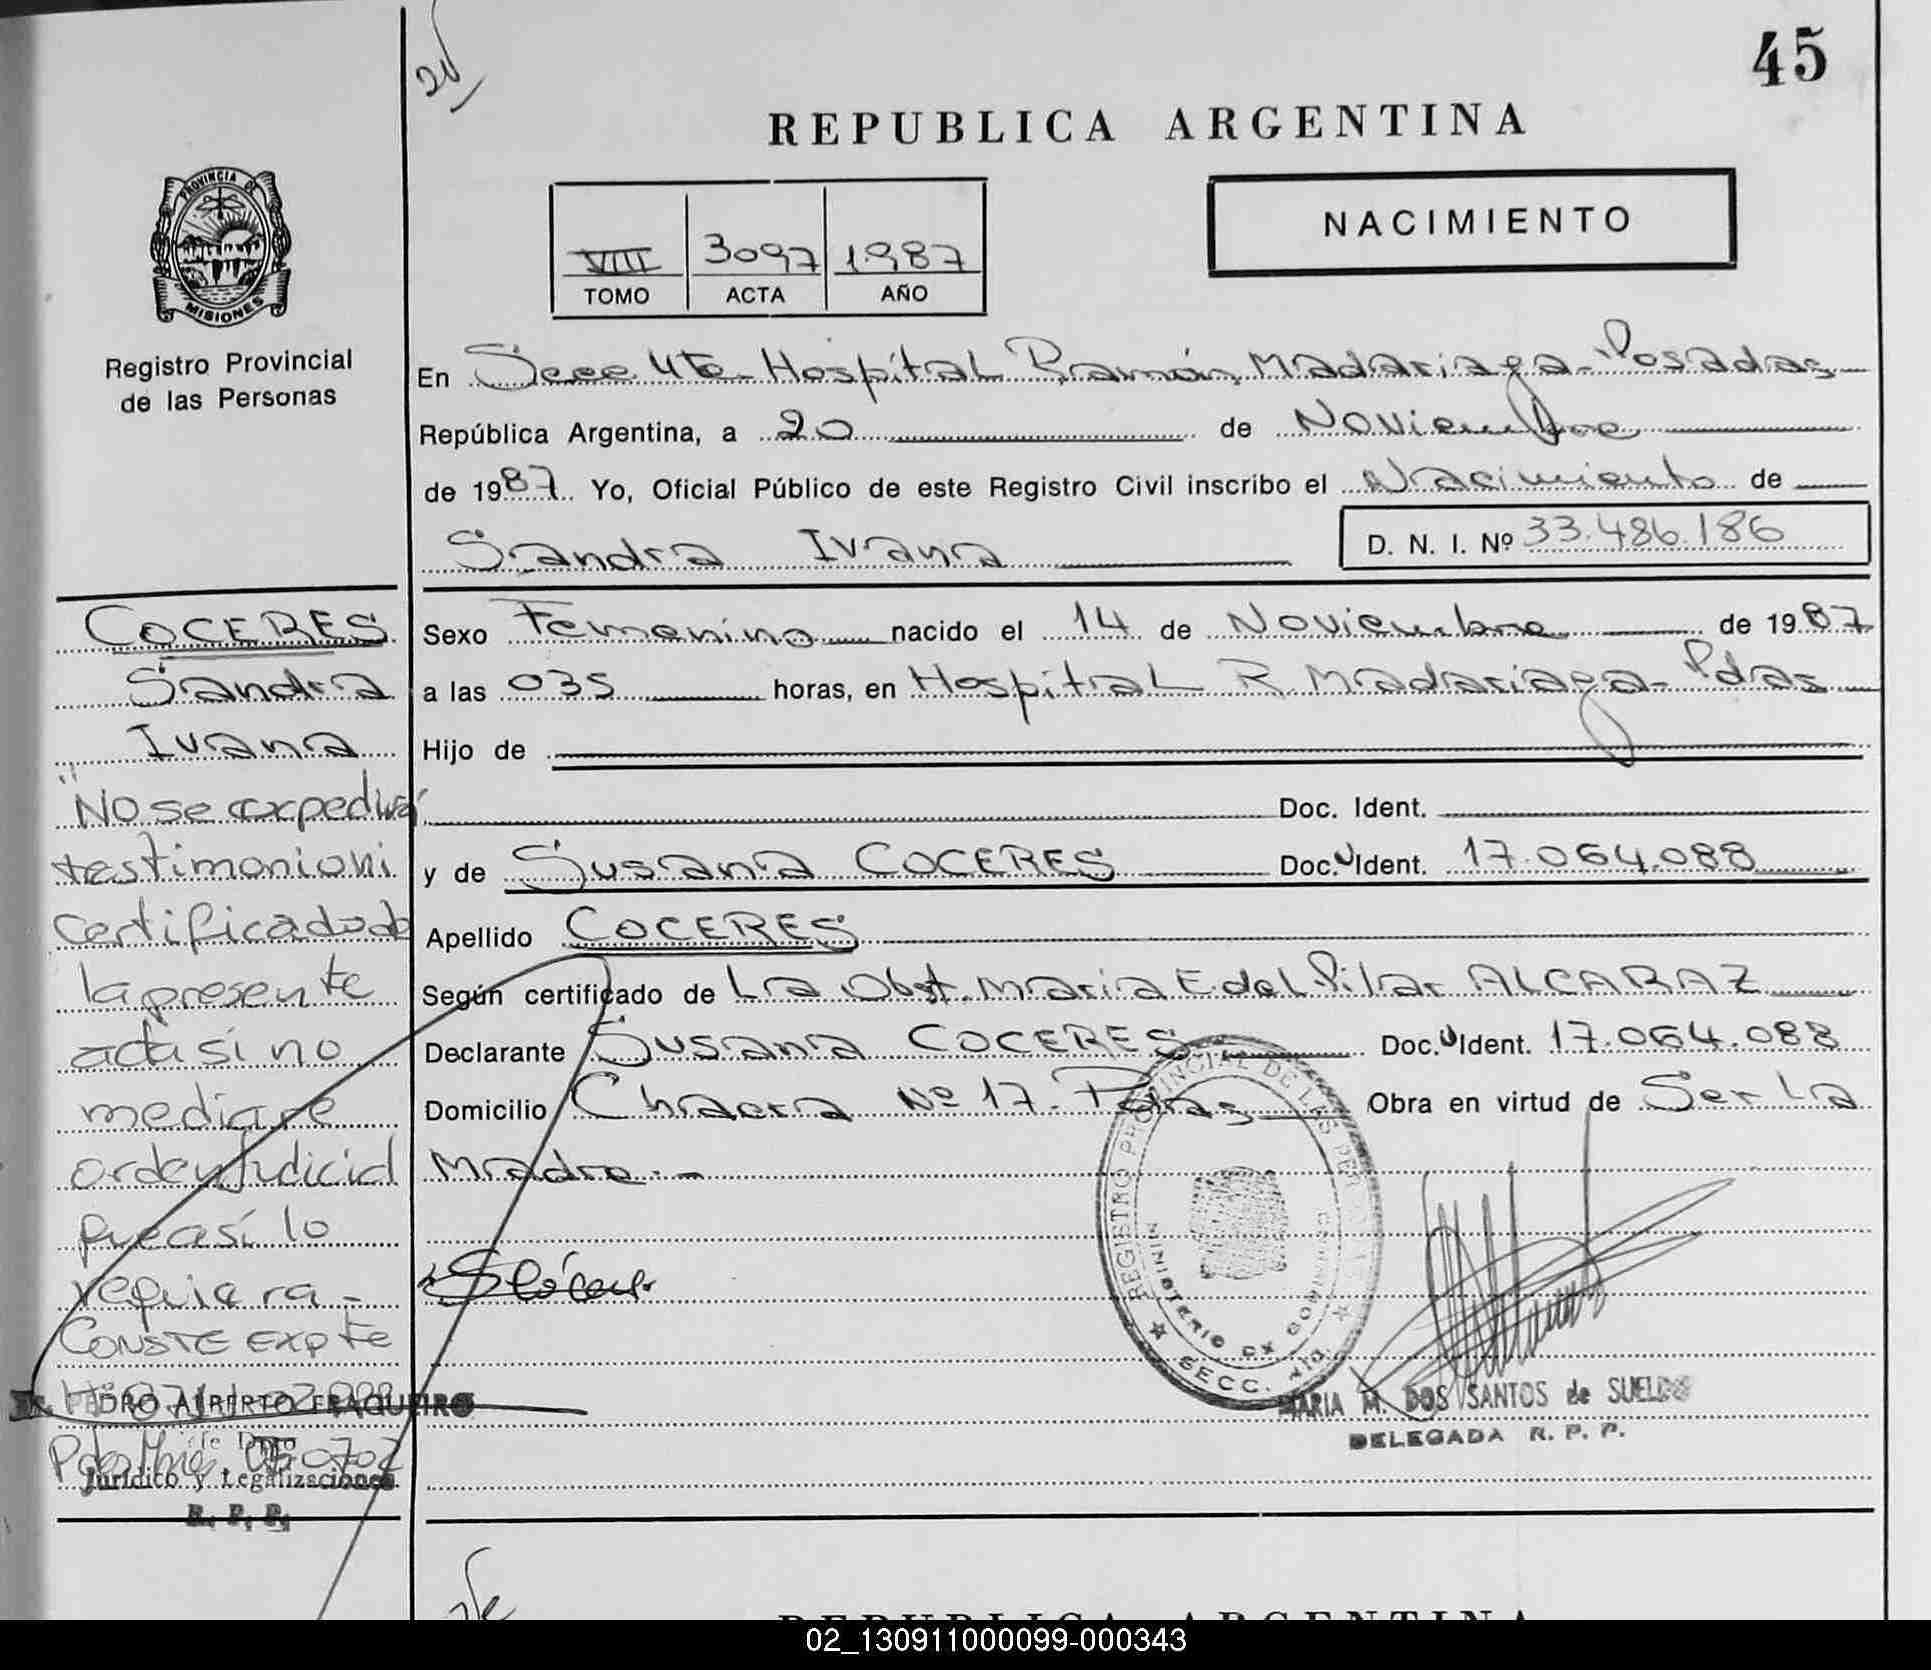 45
REPUBLICA ARGENTINA
PROVINCIA DE
MISIONES
Registro Provincial
de las Personas
VIII 3097 1987
TOMO ACTA AÑO
NACIMIENTO
En Secc 4ta Hospital Ramón Madariaga - Posadas
República Argentina, a 20 de Noviembre
de 1987. Yo, Oficial Público de este Registro Civil inscribo el Nacimiento de
Sandra Ivana D. N. I. Nº 33.486.186
Sexo Femenino nacido el 14 de Noviembre de 1987
a las 035 horas, en Hospital R. Madariaga - Pdas
Hijo de
Doc. Ident.
y de Susana COCERES Doc. Ident. 17.064.088
Apellido COCERES
Según certificado de La Obst. Maria E. del Pilar ALCARAZ
Declarante Susana COCERES Doc. Ident. 17.064.088
Domicilio Chacra Nº 17. Pdas Obra en virtud de Ser La
Madre.-
COCERES
Sandra
Ivana
"No se expedirá
testimonio ni
certificado de
la presente
acta si no
mediare
orden judicial
que así lo
requiera -
CONSTE EXPTE
PEDRO ALBERTO FRAQUEIRO
Jurídico y Legalizaciones
R. P. P.
REGISTRO PROVINCIAL DE LAS PERSONAS
MINISTERIO DE GOBIERNO
SECC.
MARIA M. DOS SANTOS de SUELDO
DELEGADA R. P. P.
REPUBLICA ARGENTINA
02_130911000099-000343